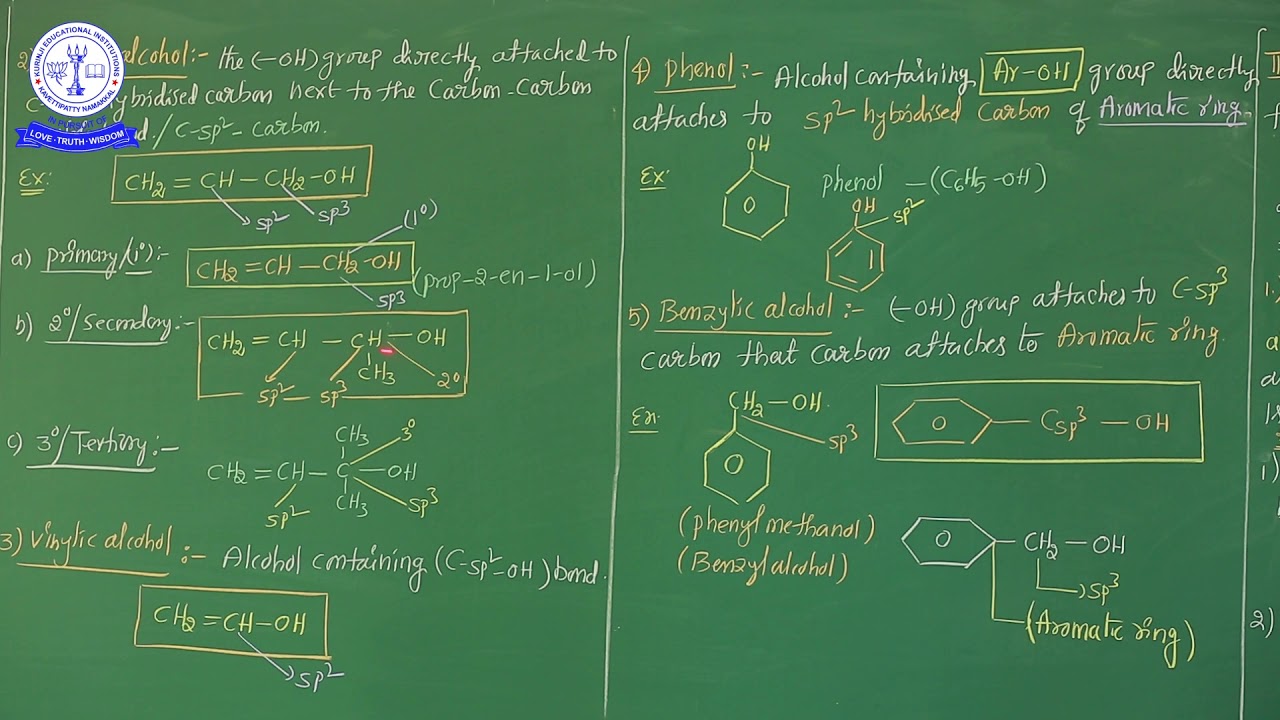 KURINJI EDUCATIONAL INSTITUTIONS
KAVETTIPATTY NAMAKKAL
IN PURSUIT OF
LOVE - TRUTH - WISDOM
alcohol:- the (-OH) group directly attached to
hybridised carbon next to the Carbon-Carbon
d./C-sp²- carbon.
Ex:
CH2 = CH - CH2-OH
sp²
sp³
(1°)
a) primary/(1°):-
CH2 =CH - CH2-OH
(prop-2-en-1-ol)
sp3
b) 2°/Secondary:-
CH2 = CH - CH - OH
CH3
sp²
sp³
2°
c) 3°/Tertiary:-
CH3
3°
CH2 = CH - C - OH
CH3
sp²
sp³
3) Vinylic alcohol :- Alcohol containing (C-sp²-OH) bond.
CH2 = CH-OH
sp²
4) phenol:- Alcohol containing Ar-OH group directly
attaches to sp²-hybridised Carbon of Aromatic ring.
Ex:
OH
phenol - (C6H5-OH)
OH
sp²
5) Benzylic alcohol:- (-OH) group attaches to C-sp³
carbon that carbon attaches to Aromatic ring.
Ex:
CH2 - OH
sp³
- Csp³ - OH
(phenyl methanol)
(Benzyl alcohol)
- CH2 - OH
sp³
(Aromatic ring)
1)
2)